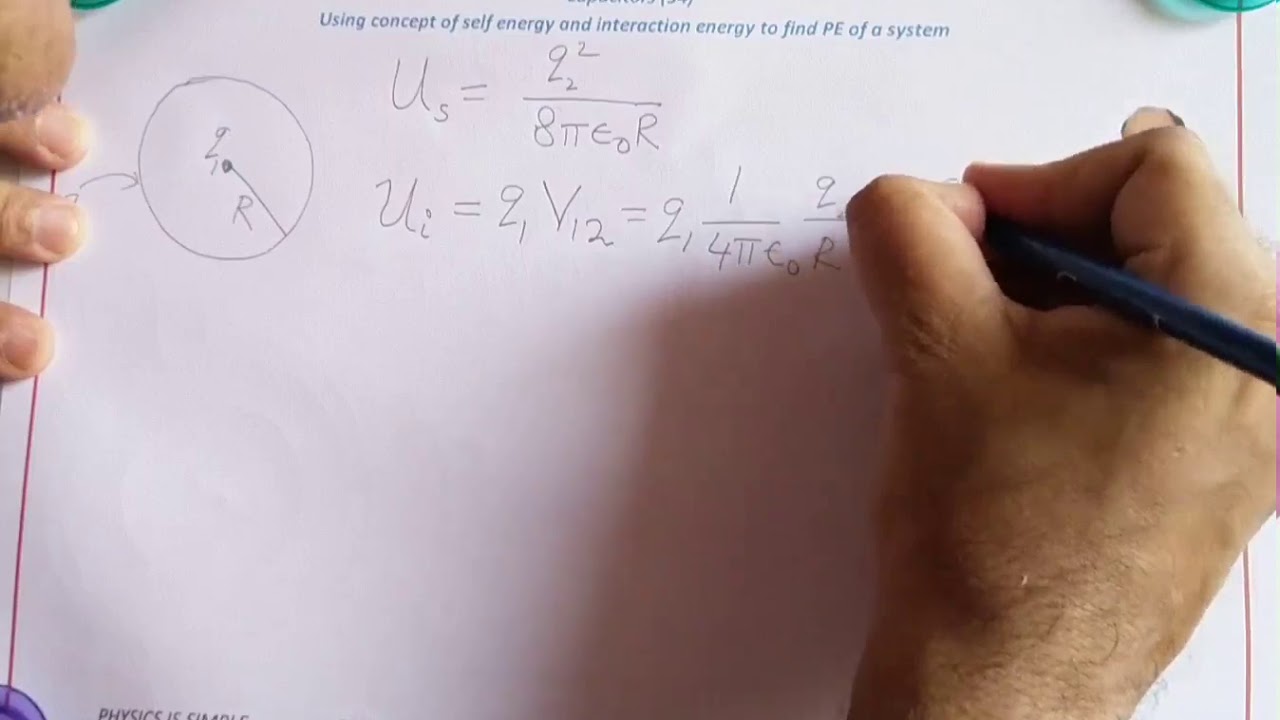 Using concept of self energy and interaction energy to find PE of a system
U_s = q_2^2 / 8πϵ_0R
q_1
R
U_i = q_1 V_12 = q_1 1/4πϵ_0 q/R
PHYSICS IS SIMPLE